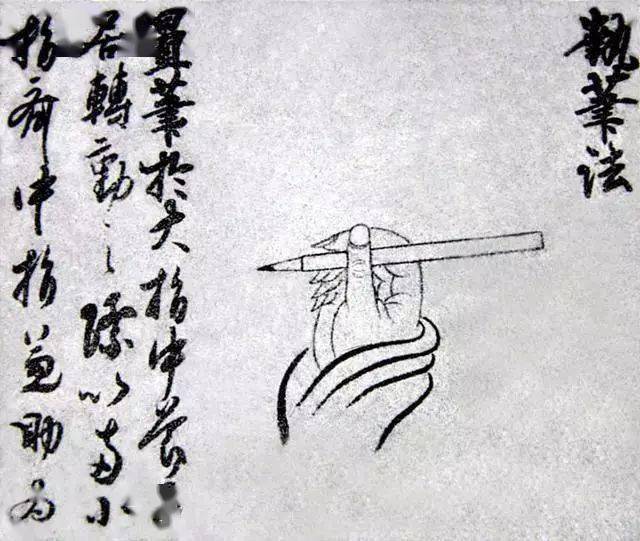 執筆法
置筆於大指中節
居轉動之際以兩小
指齊中指兼助為